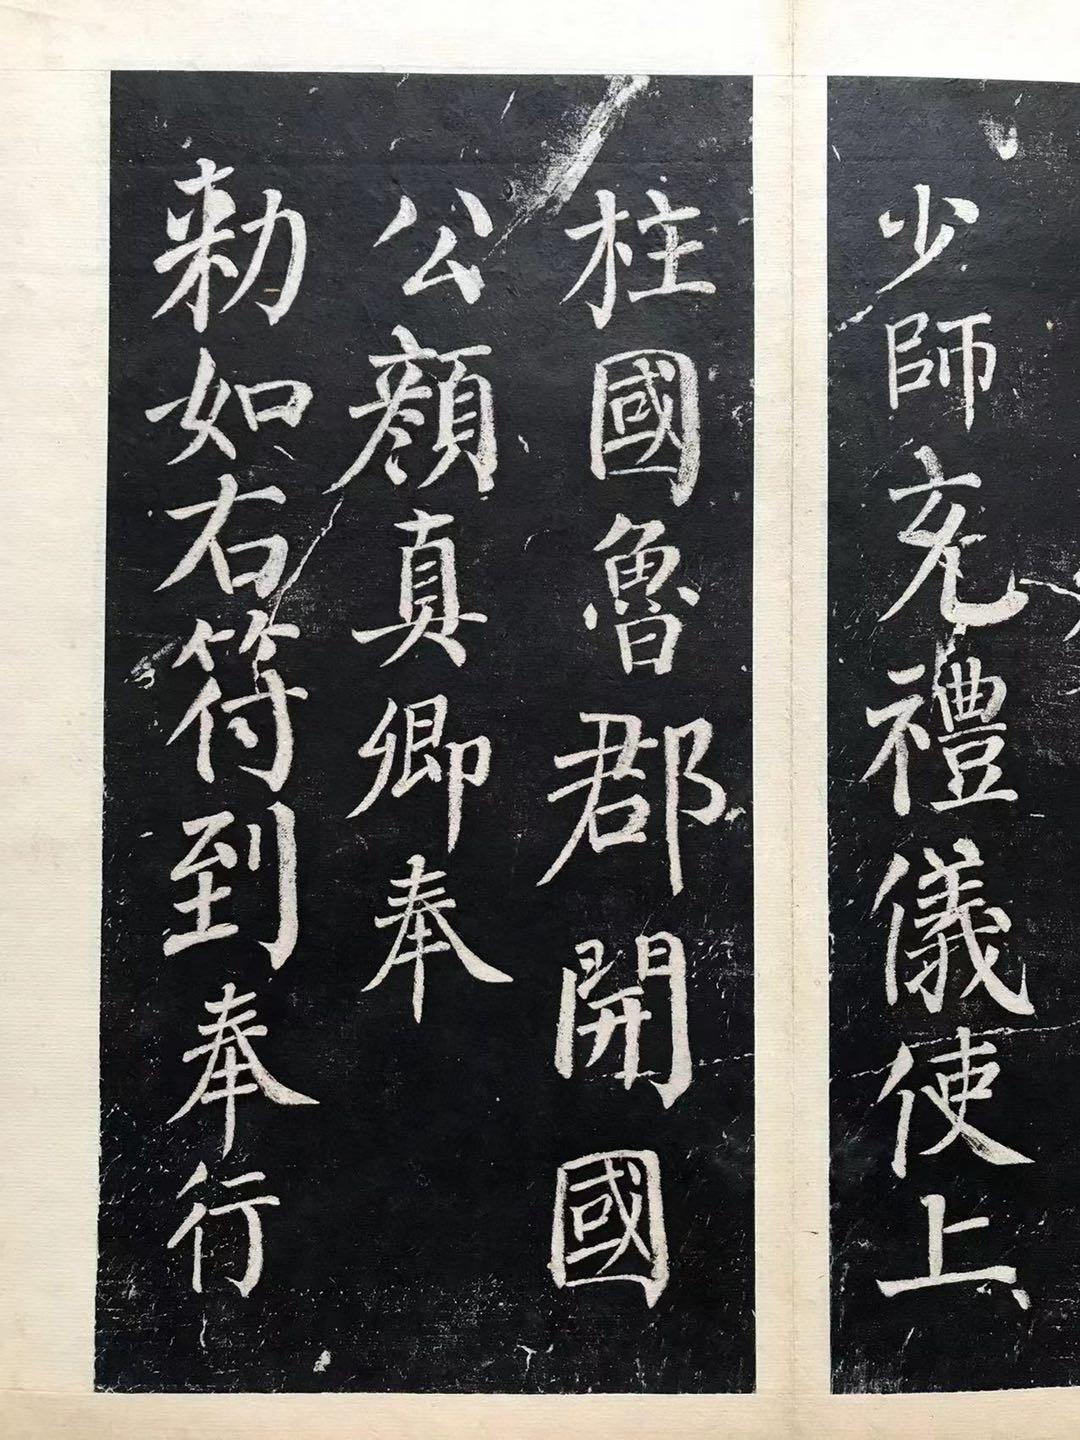 少師充禮儀使上
柱國魯郡開國
公顏真卿奉
勑如右符到奉行